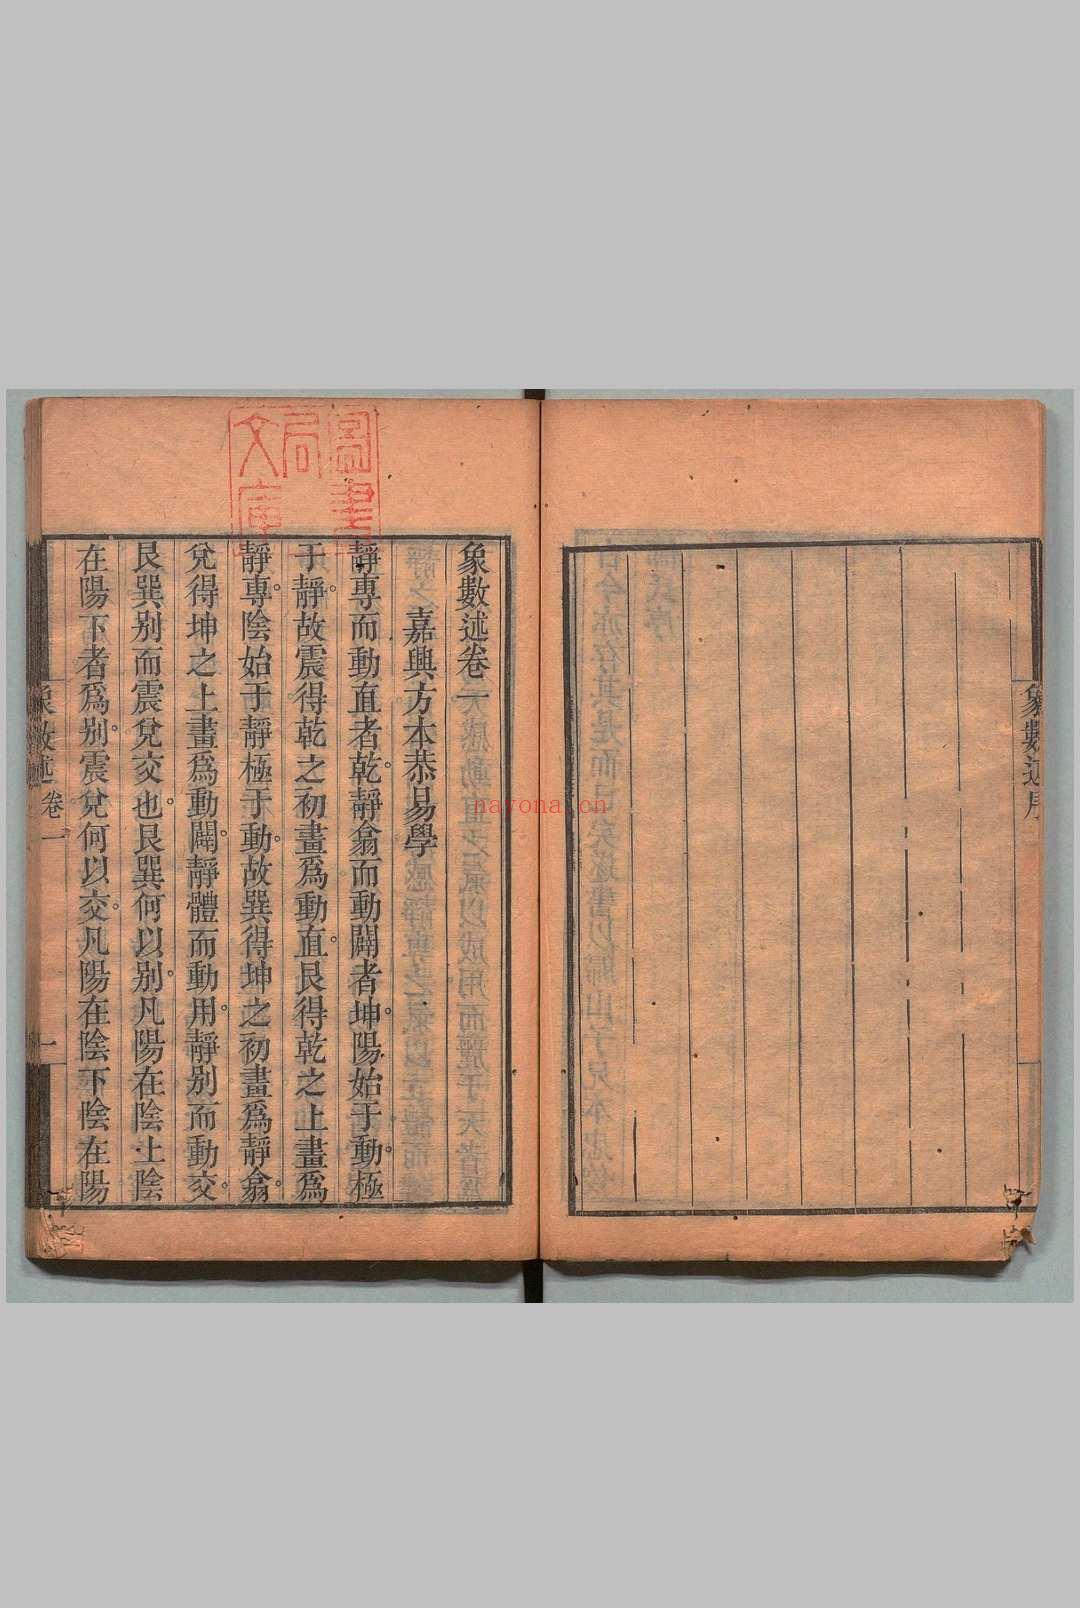 象數述序
圖書
局
文庫
象數述卷一
嘉興方本恭易學
靜專而動直者。乾靜翕而動闢者。坤陽始于動。極
于靜。故震得乾之初畫爲動直。艮得乾之上畫爲
靜專。陰始于靜極于動。故巽得坤之初畫爲靜翕。
兌得坤之上畫爲動闢。靜體而動用。靜別而動交。
艮巽別而震兌交也。艮巽何以別。凡陽在陰上陰
在陽下者爲別。震兌何以交。凡陽在陰下陰在陽
象數述卷一
一
nayona.cn